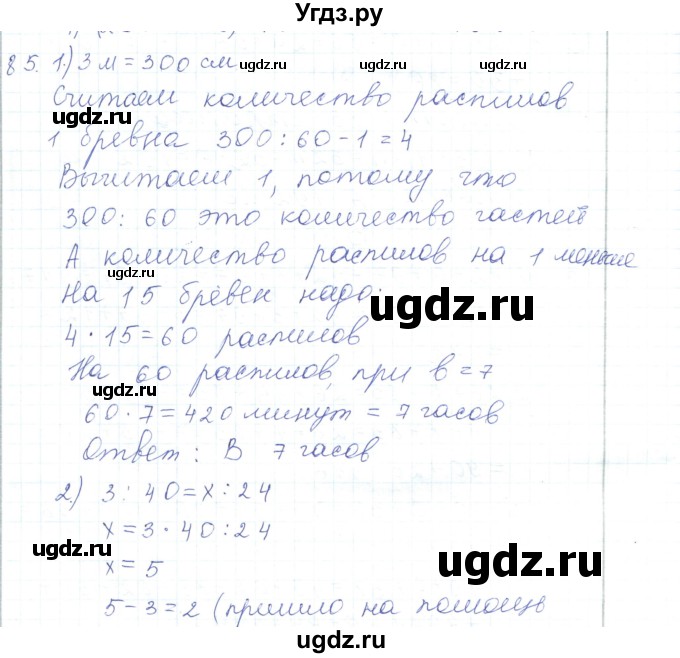 Угдз.ру
85. 1.) 3 м = 300 см
ugdz.ru
ugdz.ru
Считаем количество распилов
ugdz.ru
1 бревна 300 : 60 - 1 = 4
Вычитаем 1, потому что
ugdz.ru
300 : 60 это количество частей
А количество распилов на 1 меньше
ugdz.ru
На 15 бревен надо:
ugdz.ru
4 · 15 = 60 распилов
На 60 распилов, при b = 7
ugdz.ru
ugdz.ru
60 · 7 = 420 минут = 7 часов
Ответ: В 7 часов
2.) 3 : 40 = x : 24
ugdz.ru
x = 3 · 40 : 24
ugdz.ru
ugdz.ru
x = 5
5 - 3 = 2 (пришло на помощь
ugdz.ru